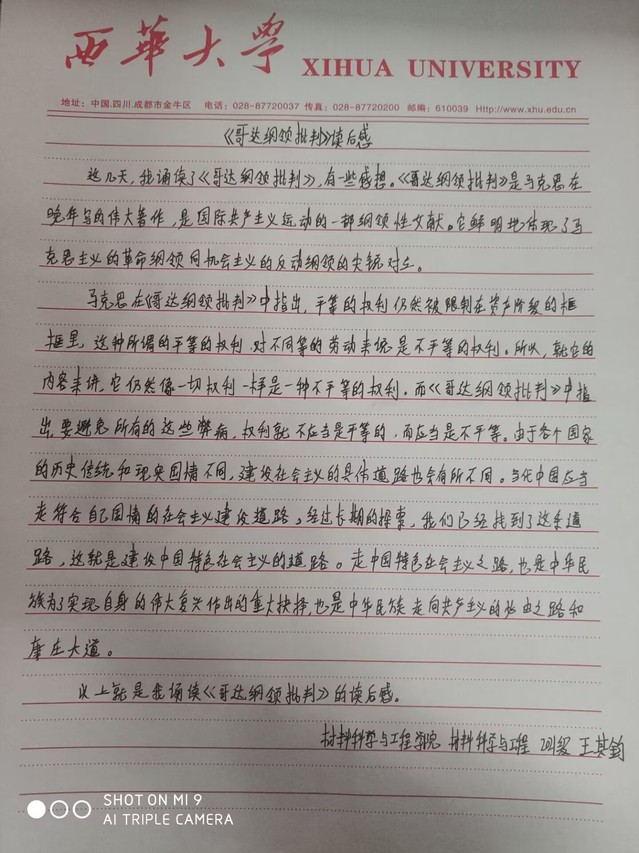 西華大學 XIHUA UNIVERSITY
地址：中国.四川.成都市金牛区 电话：028-87720037 传真：028-87720200 邮编：610039 Http://www.xhu.edu.cn
《哥达纲领批判》读后感
这几天，我诵读了《哥达纲领批判》，有一些感想。《哥达纲领批判》是马克思在
晚年写的伟大著作，是国际共产主义运动的一部纲领性文献。它鲜明地体现了马
克思主义的革命纲领同机会主义的反动纲领的尖锐对立。
马克思在《哥达纲领批判》中指出，平等的权利仍然被限制在资产阶级的框
框里，这种所谓的平等的权利，对不同等的劳动来说是不平等的权利。所以，就它的
内容来讲，它仍然像一切权利一样是一种不平等的权利。而《哥达纲领批判》中指
出，要避免所有的这些弊病，权利就不应当是平等的，而应当是不平等。由于各个国家
的历史传统和现实国情不同，建设社会主义的具体道路也会有所不同。当代中国应当
走符合自己国情的社会主义建设道路。经过长期的探索，我们已经找到了这条道
路，这就是建设中国特色社会主义的道路。走中国特色社会主义之路，也是中华民
族为了实现自身的伟大复兴作出的重大抉择，也是中华民族走向共产主义的必由之路和
康庄大道。
以上就是我诵读《哥达纲领批判》的读后感。
材料科学与工程学院 材料科学与工程 21级 王其钧
SHOT ON MI 9
AI TRIPLE CAMERA